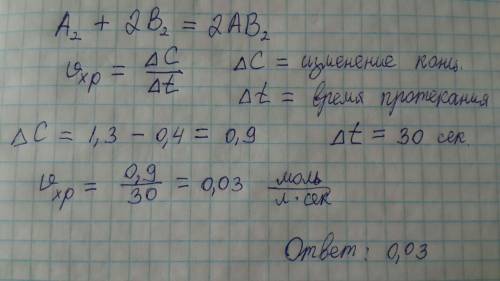 A₂ + 2B₂ = 2AB₂
υхр = ΔC/Δt   ΔC = изменение конц.
Δt = время протекания
ΔC = 1,3 − 0,4 = 0,9   Δt = 30 сек
υхр = 0,9/30 = 0,03 моль/л·сек
Ответ: 0,03